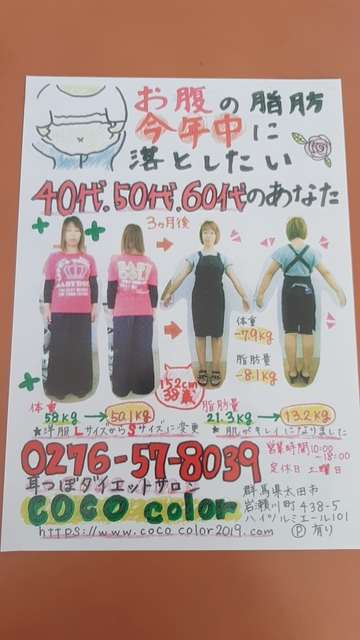 お腹の脂肪
今年中に
落としたい
40代.50代.60代のあなた
3ヵ月後
体重
-7.9kg
脂肪量
-8.1kg
152cm
38歳
体重
58kg → 50.1kg
脂肪量
21.3kg → 13.2kg
★洋服LサイズからSサイズに変更
★肌がキレイになりました
0276-57-8039
営業時間10:00
~18:00
定休日 土曜日
耳つぼダイエットサロン
coco color
群馬県太田市
岩瀬川町438-5
ハイツルミエール101
https://www.cococolor2019.com
Ⓟ有り